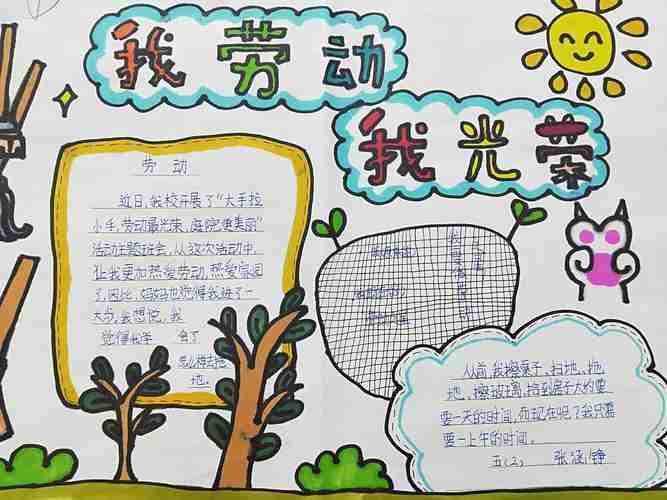 我劳动
我光荣
劳动
近日,我校开展了“大手拉
小手,劳动最光荣,庭院更美丽”
活动主题班会,从这次活动中,
让我更加热爱劳动,热爱家园
了,因此,妈妈也觉得我进了一
大步,我想说,我
觉得
怎么样去拖
地。
从前,我擦桌子、扫地、拖
地、擦玻璃,捡到屋子大约要
要一天的时间,而现在呢?我只需
要一上午的时间。
五(2) 张涵铮